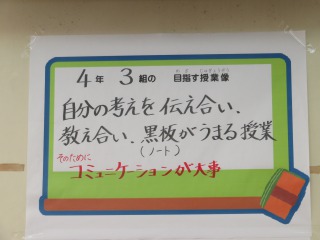 4年 3組の 目指す授業像
自分の考えを伝え合い、
教え合い、黒板がうまる授業
(ノート)
そのために
コミュニケーションが大事